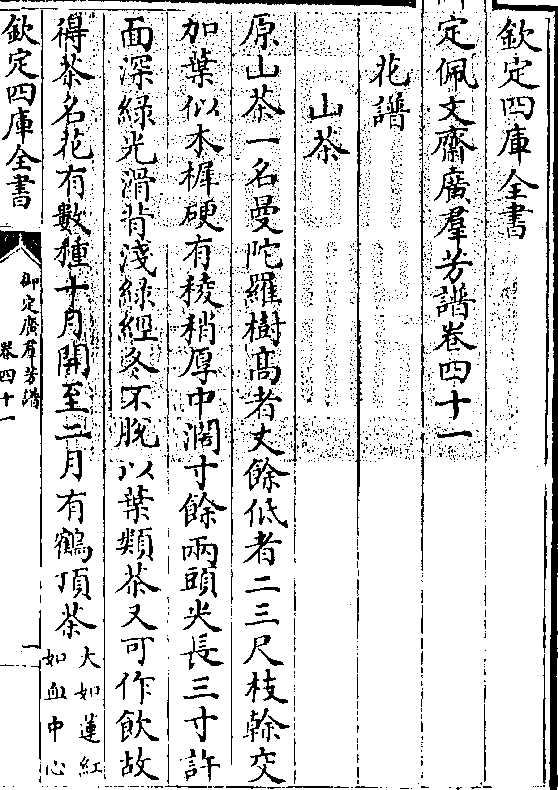 欽定四庫全書
定佩文齋廣羣芳譜卷四十一
花譜
山茶
原山茶一名曼陀羅樹高者丈餘低者二三尺枝榦交
加葉似木樨硬有稜稍厚中濶寸餘兩頭尖長三寸許
面深綠光滑背淺綠經冬不脫以葉類茶又可作飲故
得茶名花有數種十月開至二月有鶴頂茶
大如蓮紅
如血中心
欽定四庫全書
御定廣羣芳譜
卷四十一
一